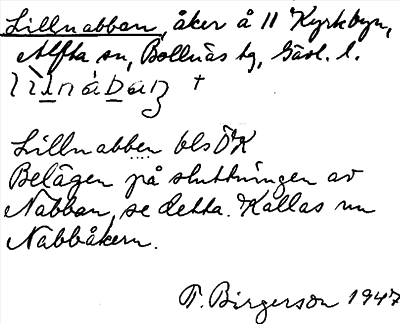 Lillnabban, åker å 11 Kyrkbyn,
Alfta sn, Bollnäs tg, Gävl. l.
Lillnabben bls ÖK
Belägen på sluttningen av
Nabban, se detta. Kallas nu
Nabbåkern.
T. Birgerson 1947